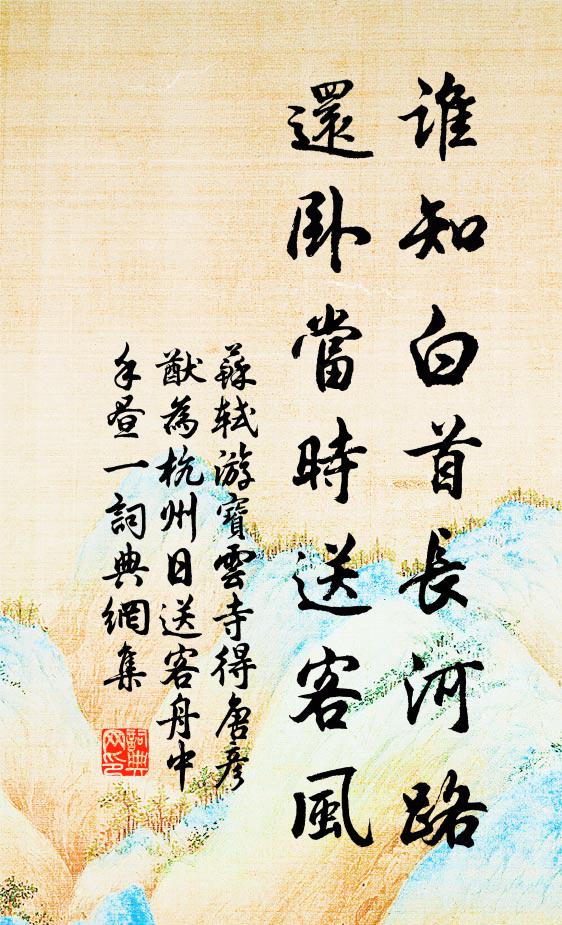 誰知白首長河路
還卧當時送客風
蘇軾游寶雲寺得唐彥
猷為杭州日送客舟中
手書一詞典網集
詞典網印